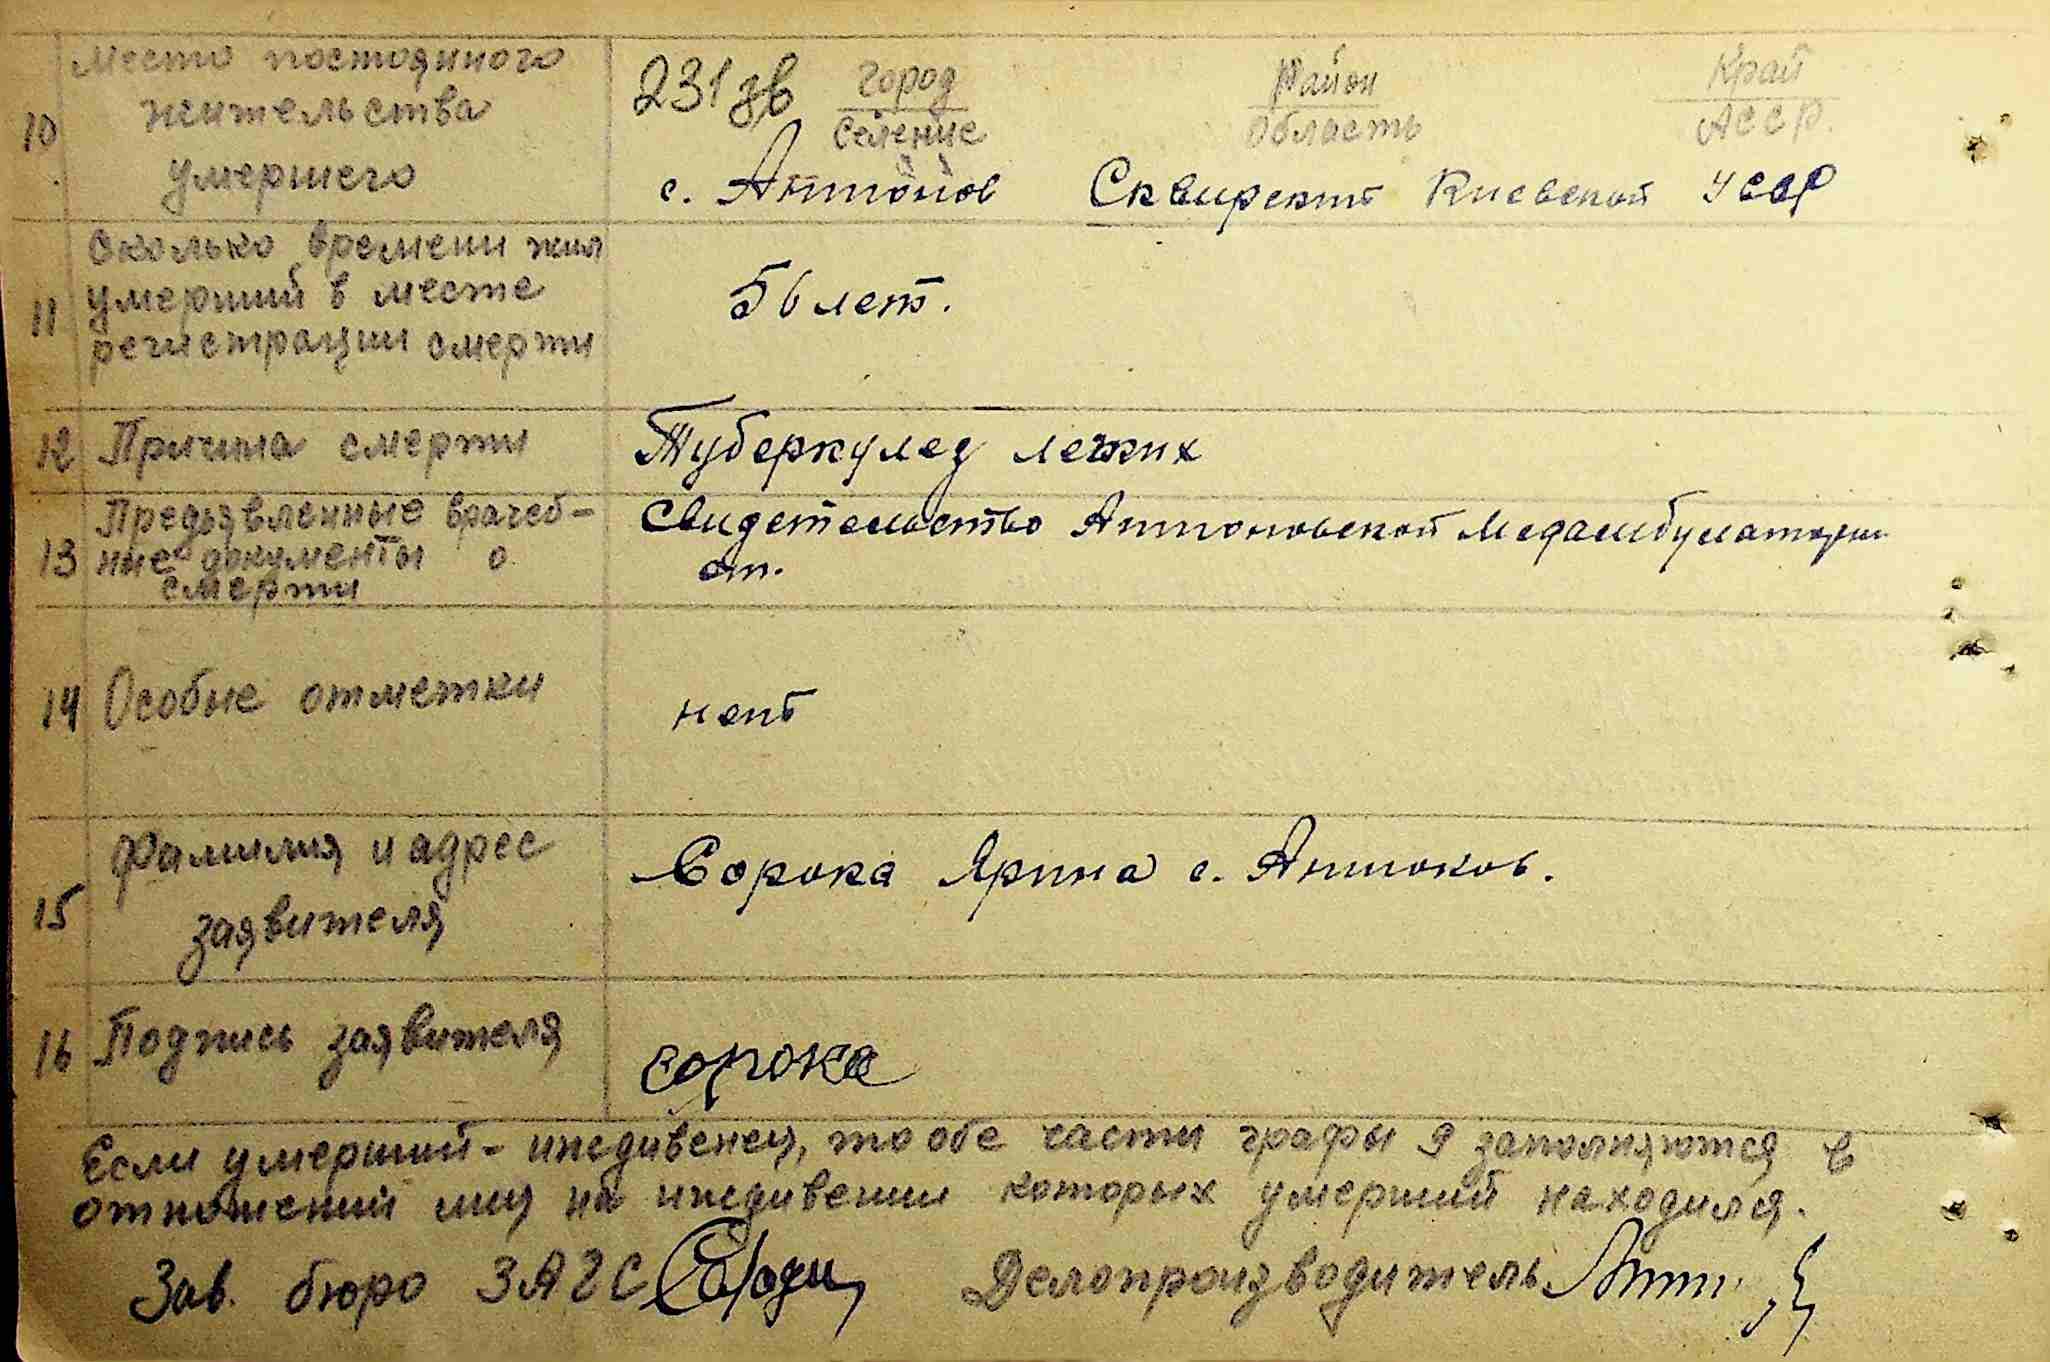 10 Место постоянного жительства умершего
231 зв город селение район область край АССР
с. Антонов Сквирский Киевской УССР
11 Сколько времени жил
умерший в месте
регистрации смерти
56 лет.
12 Причина смерти Туберкулез легких
13 Предъявленные врачеб-
ные документы о
смерти
Свидетельство Антоновской Медамбулатории
от.
14 Особые отметки нет
15 Фамилия и адрес
заявителя
Сорока Ярина с. Антонов.
16 Подпись заявителя Сорока
Если умерший - иждивенец, то обе части графы 9 заполняются в
отношении лиц на иждивении которых умерший находился.
Зав. бюро ЗАГС Делопроизводитель